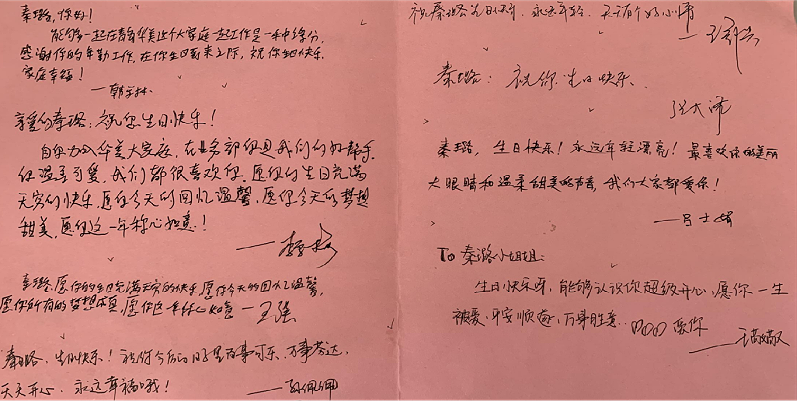 秦璐,你好!
能够一起在静华美这个大家庭一起工作是一种缘分,
感谢你的辛勤工作,在你生日到来之际,祝你生日快乐,
家庭幸福!
亲爱的秦璐:祝您生日快乐!
自你加入华美大家庭,在业务部你是我们的好帮手,
你温柔可爱,我们都很喜欢你,愿你的生日充满
无穷的快乐,愿你今天的回忆温馨,愿你今天的梦想
甜美,愿你这一年称心如意!
——李
秦璐,愿你的生日充满无穷的快乐,愿你今天的回忆温馨,
愿你所有的梦想成真,愿你这一年称心如意 —王强
秦璐,生日快乐!祝你今后的日子里百事可乐,万事芬达,
天天开心,永远幸福哦!
——孙佩佩
祝秦璐生日快乐,永远年轻,天天有个好心情
秦璐:祝你生日快乐
秦璐,生日快乐!永远年轻漂亮!最喜欢你的美丽
大眼睛和温柔甜美的声音,我们大家都爱你!
——吕士娟
To 秦璐小姐姐:
生日快乐呀,能够认识你超级开心,愿你一生
被爱,平安顺遂,万事胜意..爱你